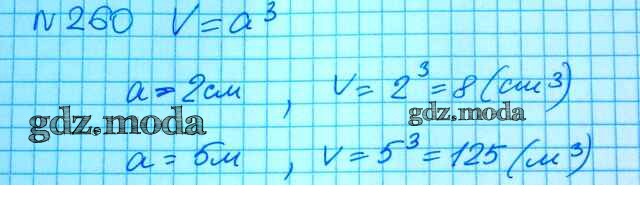 № 260 V = a³
a = 2 см , V = 2³ = 8 (см³)
gdz.moda
gdz.moda
a = 5 м , V = 5³ = 125 (м³)